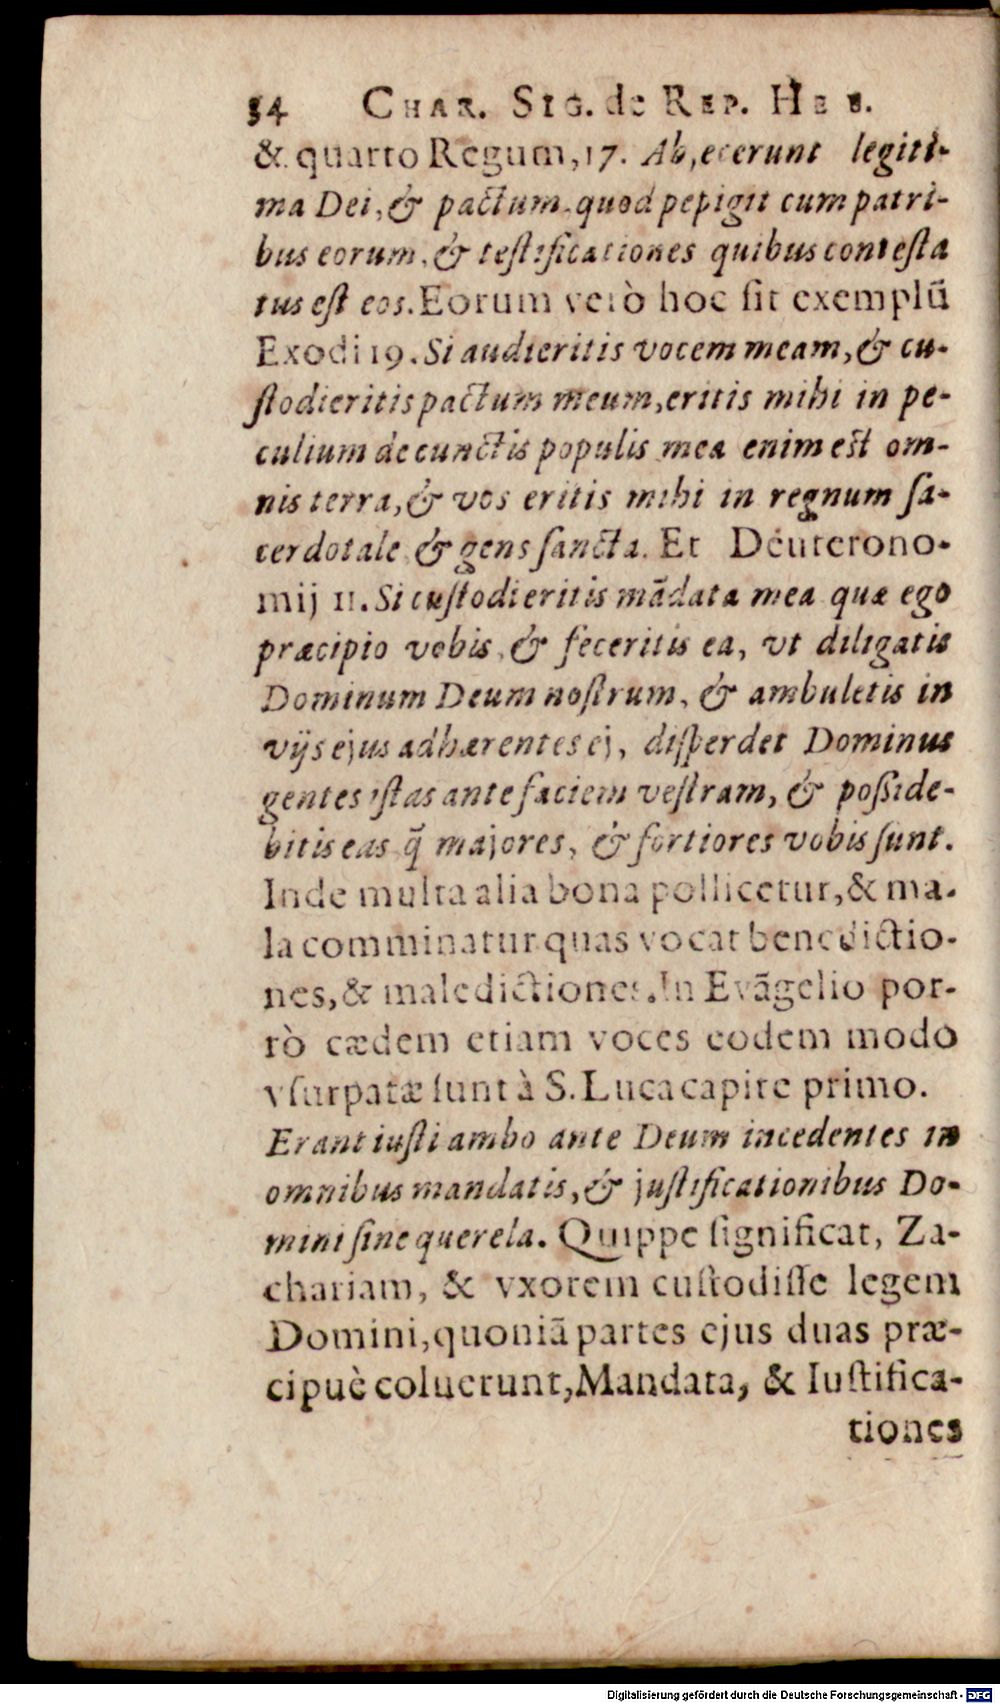 54 CHAR. SIG. de REP. HEB.
& quarto Regum, 17. Abjecerunt legiti-
ma Dei, & pactum, quod pepigit cum patri-
bus eorum, & teſtificationes quibus conteſta
tus eſt eos. Eorum verò hoc ſit exemplū
Exodi 19. Si audieritis vocem meam, & cu-
ſtodieritis pactum meum, eritis mihi in pe-
culium de cunctis populis mea enim eſt om-
nis terra, & vos eritis mihi in regnum ſa-
cerdotale & gens ſancta. Et Deuterono-
mij 11. Si cuſtodieritis mādata mea quæ ego
præcipio vobis, & feceritis ea, vt diligatis
Dominum Deum noſtrum, & ambuletis in
vijs ejus adhærentes ej, diſperdet Dominus
gentes iſtas ante faciem veſtram, & poßide-
bitis eas q̃ majores, & fortiores vobis ſunt.
Inde multa alia bona pollicetur, & ma-
la comminatur quas vocat benedictio-
nes, & maledictiones. In Evāgelio por-
rò cædem etiam voces eodem modo
vſurpatæ ſunt à S. Luca capite primo.
Erant iuſti ambo ante Deum incedentes in
omnibus mandatis, & juſtificationibus Do-
mini ſine querela. Quippe ſignificat, Za-
chariam, & vxorem cuſtodiſſe legem
Domini, quoniā partes ejus duas præ-
cipuè coluerunt, Mandata, & Iuſtifica-
tiones
Digitalisierung gefördert durch die Deutsche Forschungsgemeinschaft - DFG